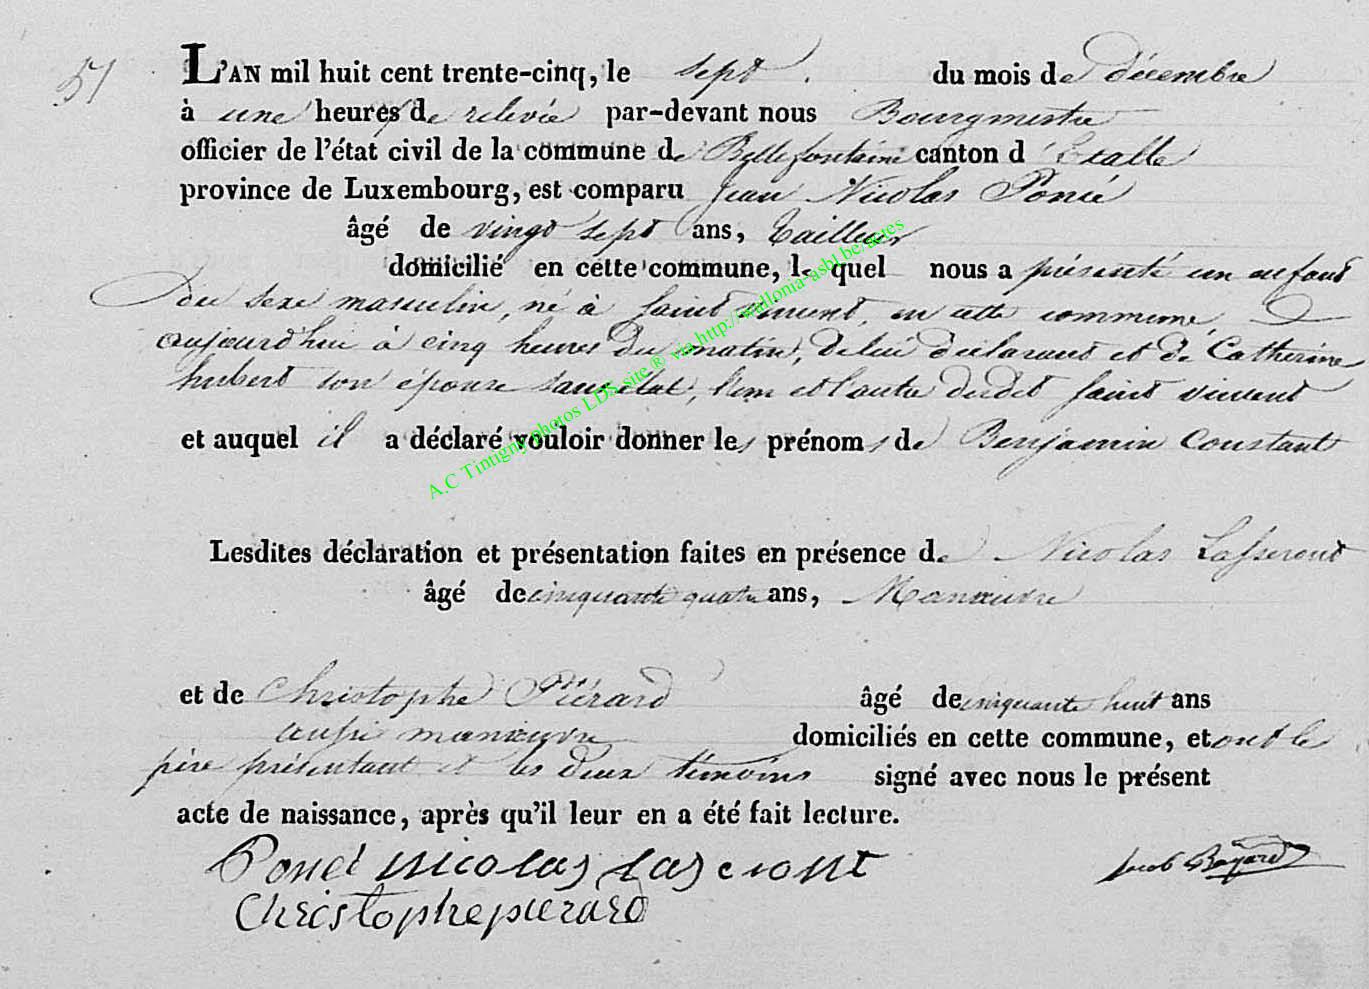 51
L'AN mil huit cent trente-cinq, le sept. du mois de décembre
à une heures de relevée par-devant nous Bourgmestre
officier de l'état civil de la commune de Bellefontaine canton d'Etalle
province de Luxembourg, est comparu Jean Nicolas Poncé
âgé de vingt sept ans, tailleur
domicilié en cette commune, lequel nous a présenté un enfant
du sexe masculin, né à saint vincent, en cette commune,
aujourd'hui à cinq heures du matin, de lui déclarant et de Catherine
hubert son épouse sans état, l'un et l'autre dudit saint vincent
et auquel il a déclaré vouloir donner les prénoms de Benjamin Constant
Lesdites déclaration et présentation faites en présence de Nicolas Lasseront
âgé de cinquante quatre ans, Manœuvre
et de Christophe Piérard âgé de cinquante huit ans
aussi manœuvre domiciliés en cette commune, et ont le
père présentant et les deux témoins signé avec nous le présent
acte de naissance, après qu'il leur en a été fait lecture.
Poncé nicolas lasseront Jacob Bayard
Christophe pierard
A.C Tintigny photos LDS site ® via http://wallonia-asbl.be/actes